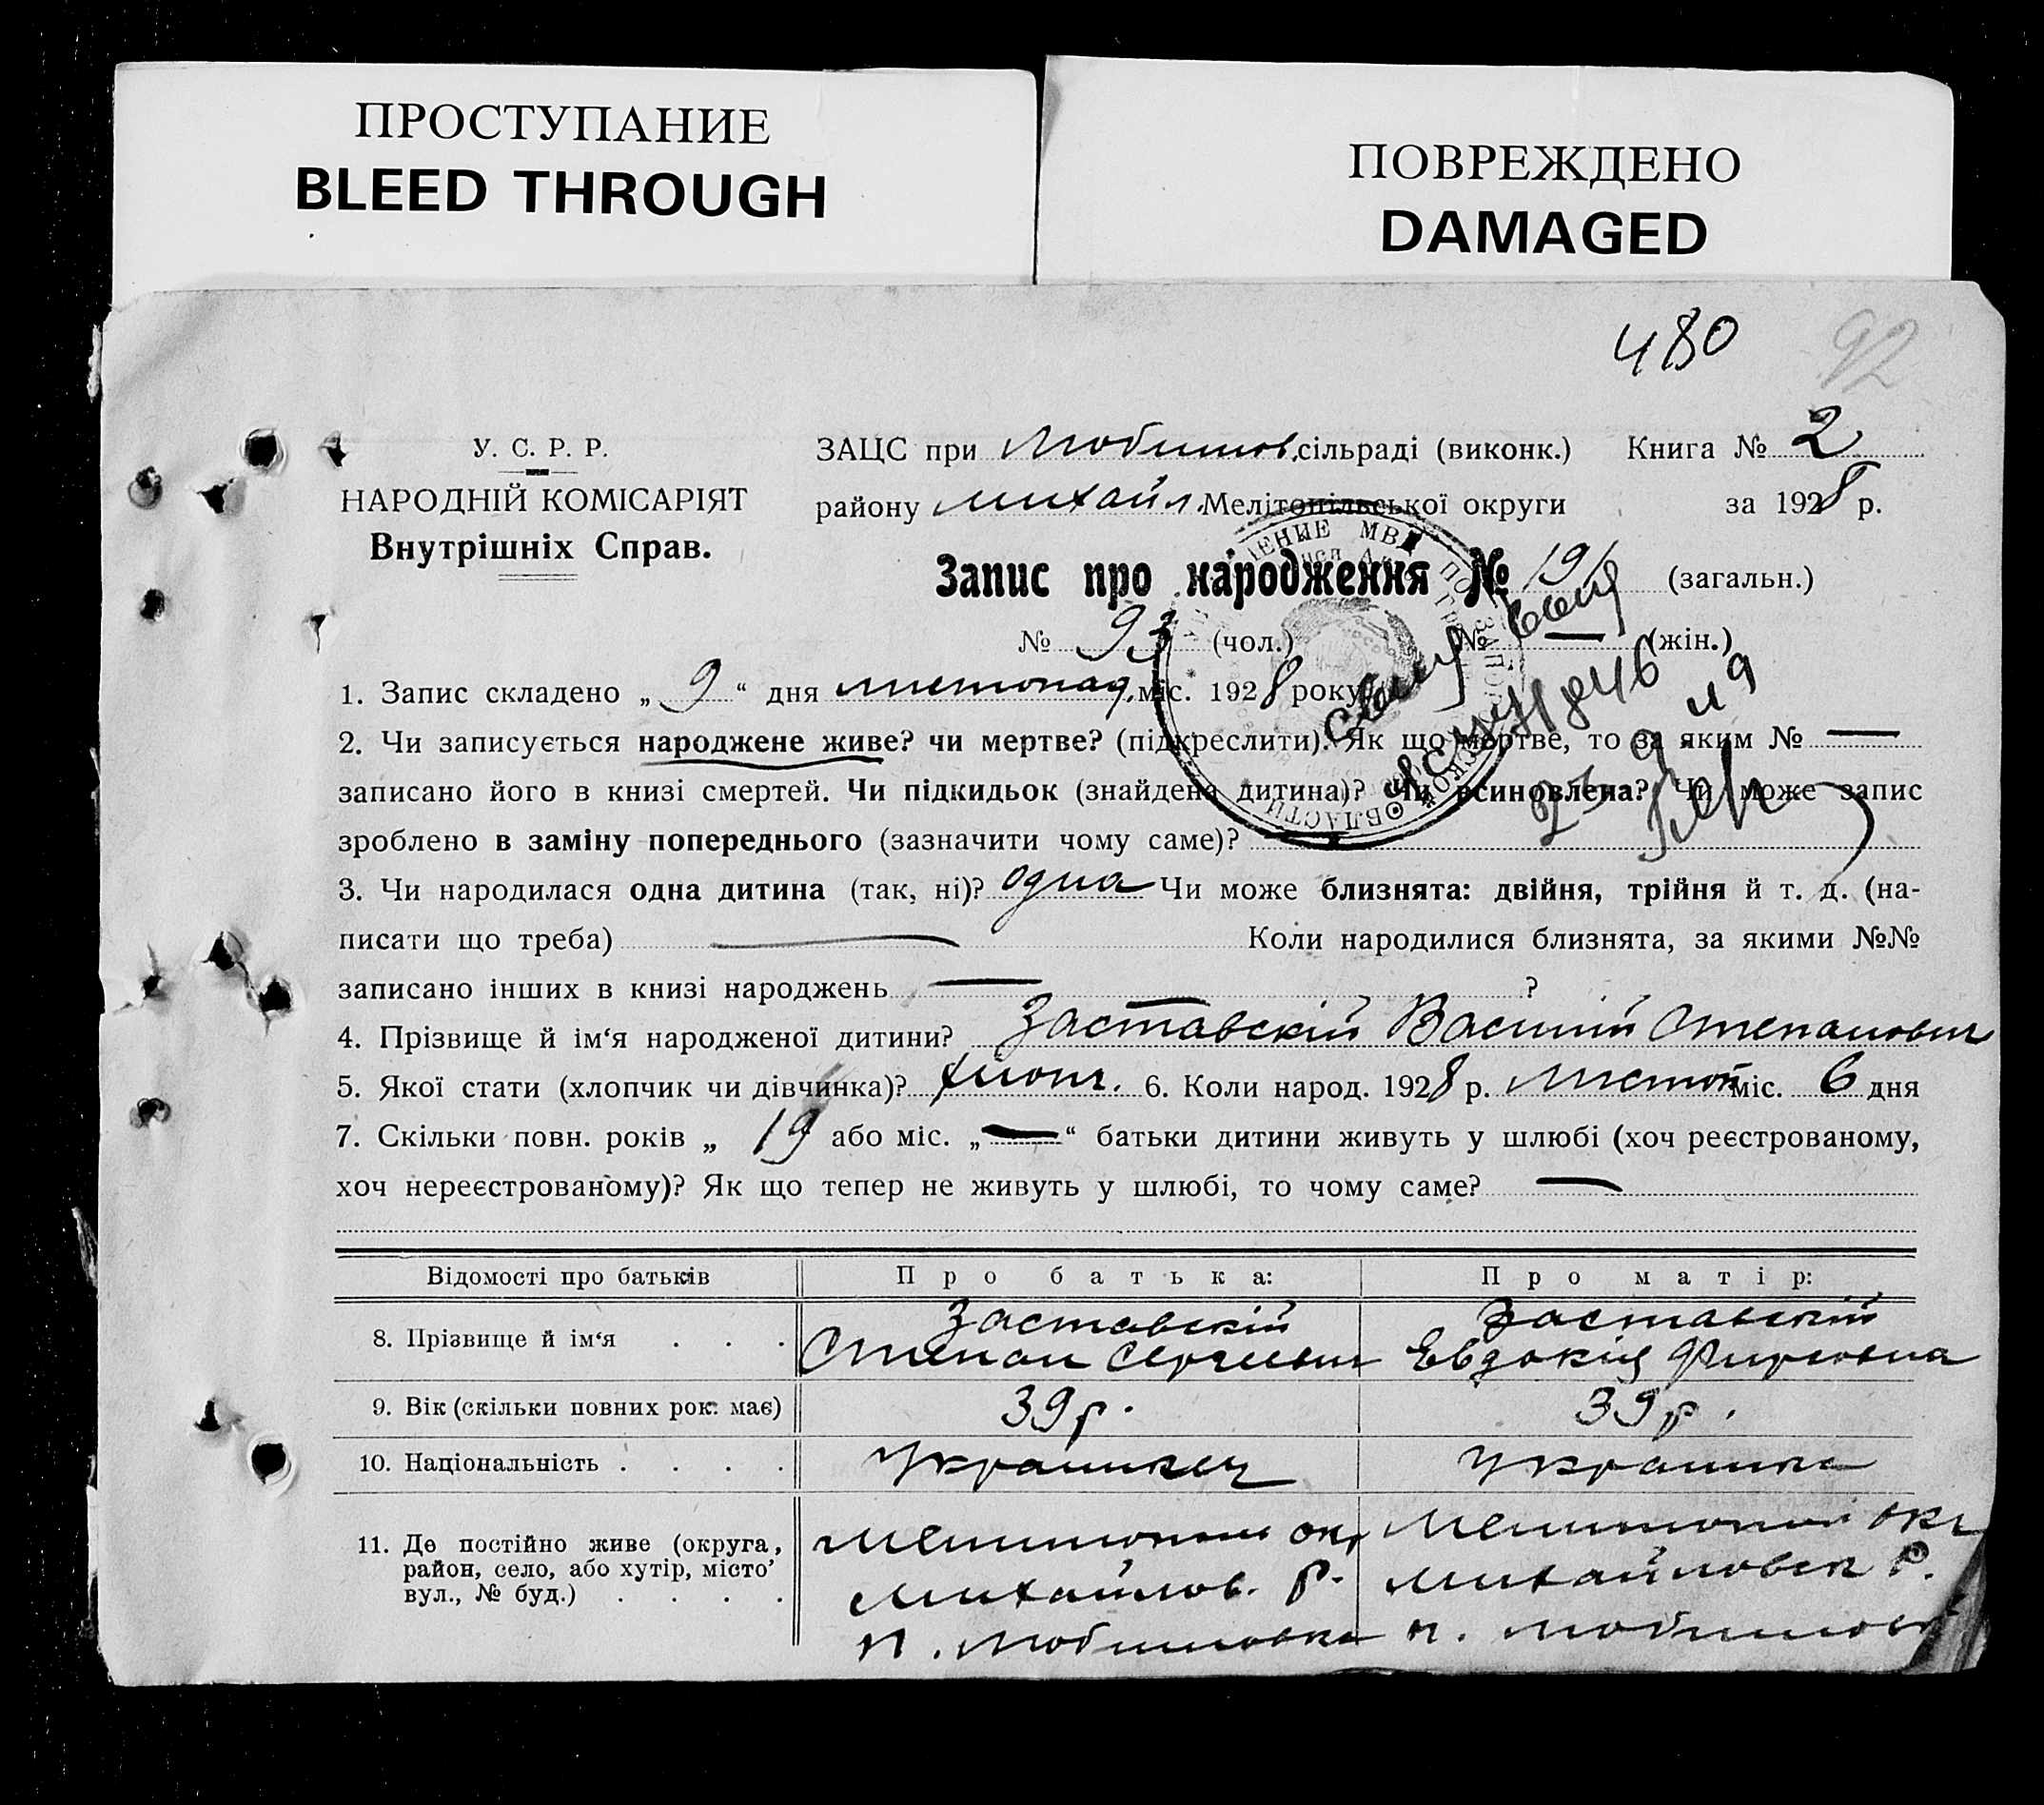 ПРОСТУПАНИЕ
BLEED THROUGH
ПОВРЕЖДЕНО
DAMAGED
480
92
У. С. Р. Р.
НАРОДНІЙ КОМІСАРІЯТ
Внутрішніх Справ.
ЗАЦС при Любимов. сільраді (виконк.) Книга № 2
району Михайл. Мелітопільської округи за 1928 р.
Запис про народження № 191 (загальн.)
№ 93 (чол.) № — (жін.)
1. Запис складено „ 9 “ дня листопад. міс. 1928 року
2. Чи записується народжене живе? чи мертве? (підкреслити). Як що мертве, то за яким № —
записано його в книзі смертей. Чи підкидьок (знайдена дитина)? Чи всиновлена? Чи може запис
зроблено в заміну попереднього (зазначити чому саме)?
3. Чи народилася одна дитина (так, ні)? одна Чи може близнята: двійня, трійня й т. д. (на-
писати що треба) — Коли народилися близнята, за якими №№
записано інших в книзі народжень — ?
4. Прізвище й ім‘я народженої дитини? Заставскій Василий Степанович
5. Якої стати (хлопчик чи дівчинка)? хлопч. 6. Коли народ. 1928 р. Листоп міс. 6 дня
7. Скільки повн. років „ 19 або міс. „ — “ батьки дитини живуть у шлюбі (хоч реєстрованому,
хоч нереєстрованому)? Як що тепер не живуть у шлюбі, то чому саме? —
Відомості про батьків Про батька: Про матір:
8. Прізвище й ім‘я . . . Заставскій Степан Сергеевич Заставскій Евдокия Фирсовна
9. Вік (скільки повних рок. має) 39 р. 39 р.
10. Національність . . . . Украинец Украинка
11. Де постійно живе (округа, район, село, або хутір, місто, вул., № буд.) . . . .
Мелитопол окр Михайлов. р. п. Любимовка
Мелитопол окр Михайловск р. п. Любимовк